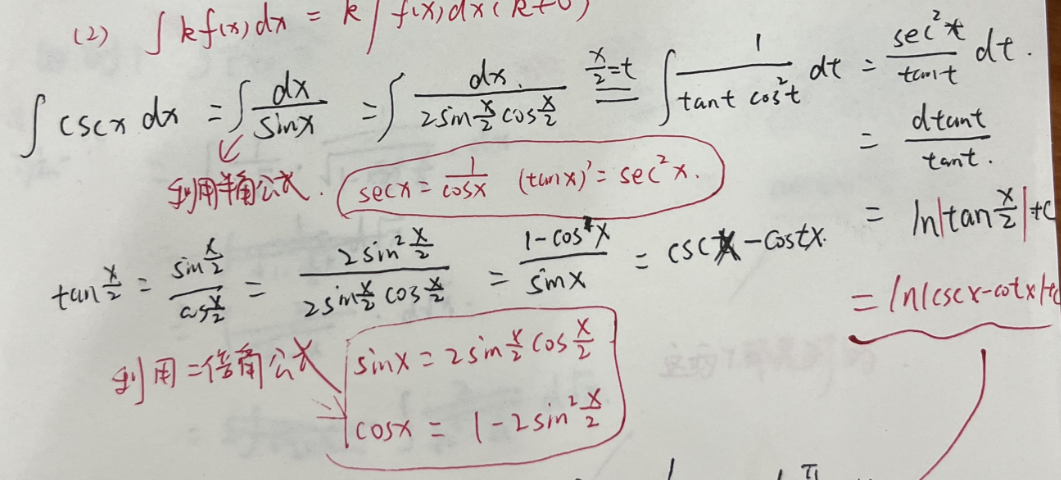 (2) ∫kf(x)dx = k∫f(x)dx(k≠0)
∫cscx dx = ∫dx/sinx = ∫dx/(2sin x/2 cos x/2) =(x/2=t)= ∫1/(tant cos²t) dt = sec²t/tant dt.
= dtant/tant.
利用半角公式. secx = 1/cosx (tanx)' = sec²x.
= ln|tan x/2|+C
tan x/2 = sin x/2 / cos x/2 = 2sin² x/2 / (2sin x/2 cos x/2) = (1-cosx)/sinx = cscx - cotx.
= ln|cscx-cotx|+C
利用二倍角公式 sinx = 2sin x/2 cos x/2
cosx = 1-2sin² x/2